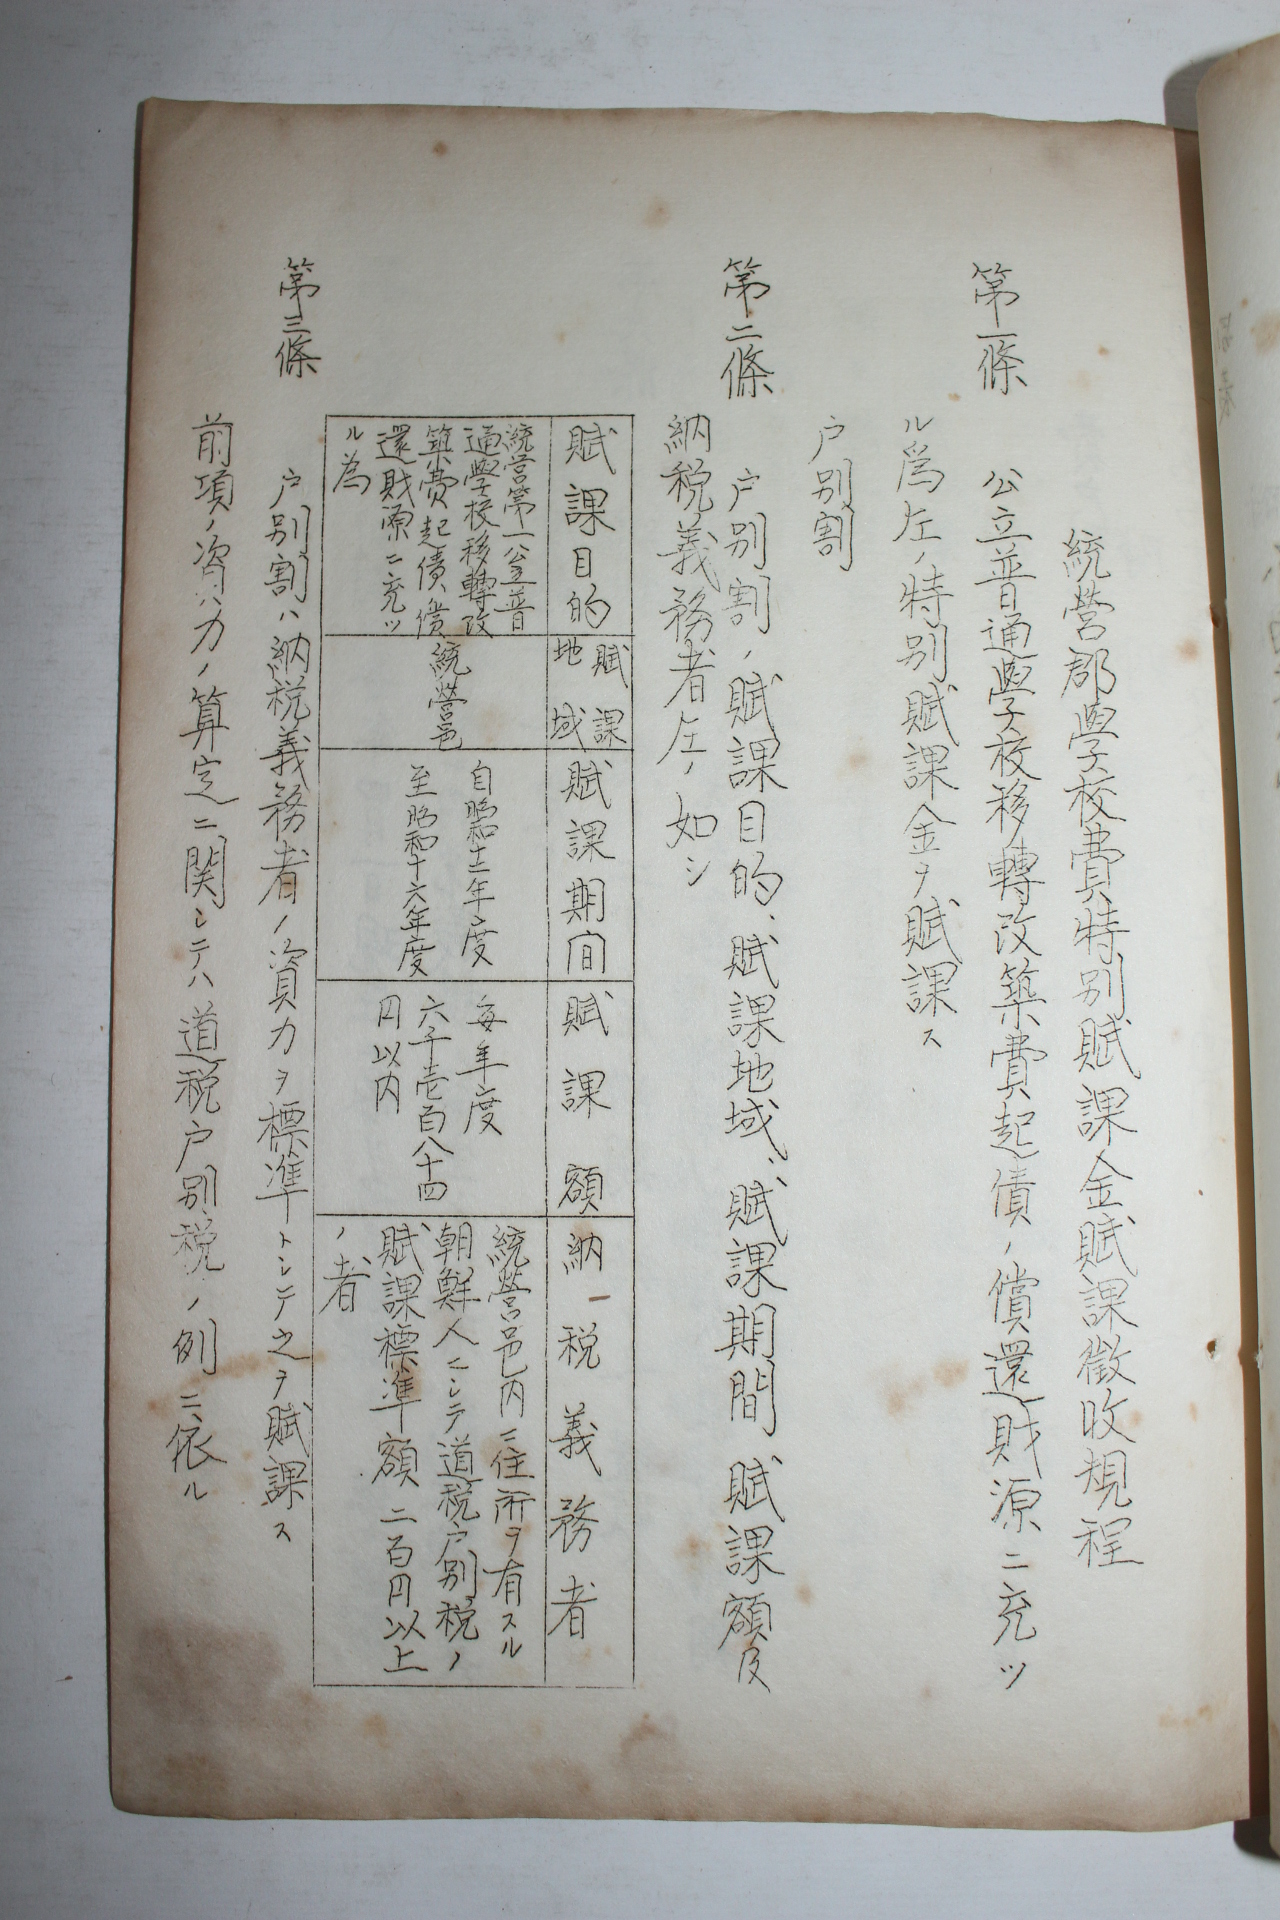 統營郡學校費特別賦課金賦課徵收規程
第一條
公立普通學校移轉改築費起債ノ償還財源ニ充ツ
ル爲左ノ特別賦課金ヲ賦課ス
戸別割
第二條
戸別割ノ賦課目的、賦課地域、賦課期間賦課額及
納税義務者左ノ如シ
賦課目的
賦課
地域
賦課期間
賦課額
納税義務者
統営第一公立普
通學校移轉改
築費起債償
還財源ニ充ツ
ル為
統營邑
自昭和十二年度
至昭和十六年度
每年度
六千壱百八十四
円以内
統營邑内ニ住所ヲ有スル
朝鮮人ニシテ道税戸別税ノ
賦課標準額二百円以上
ノ者
第三條
戸別割ハ納税義務者ノ資力ヲ標準トシテ之ヲ賦課ス
前項ノ資力ノ算定ニ関シテハ道税戸別税ノ例ニ依ル